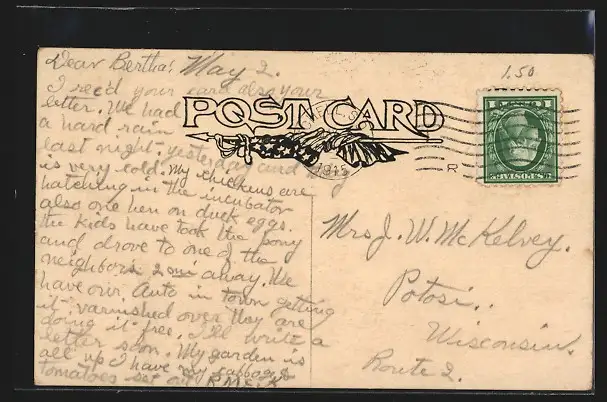 1.50
Dear Bertha: May 2.
I rec'd your card also your
letter. We had
a hard rain
last night - yesterday and
is very cold. My chickens are
hatching in the incubator
also one hen on duck eggs.
The kids have took the pony
and drove to one of the
neighbors 2 mi away. We
have our Auto in town getting
it varnished over they are
doing it free. I'll write a
letter soon. My garden is
all up I have my cabbage &
tomatoes set out
POST CARD
R
Mrs J. W. McKelvey.
Potosi..
Wisconsin.
Route 2.